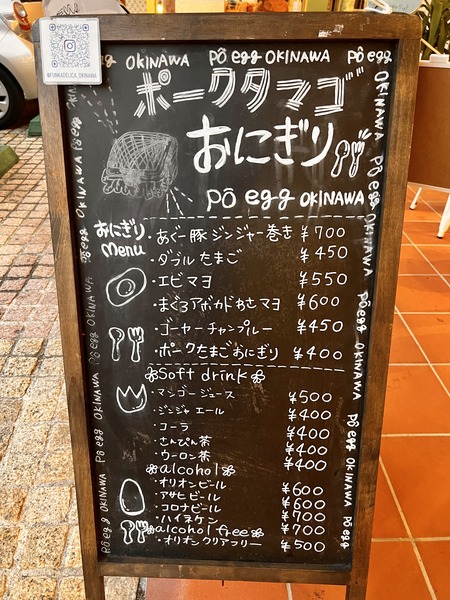 @FUNKADELICA_OKINAWA
egg OKINAWA pô egg OKINAWA pô egg
ポークタマゴ
おにぎり
pô egg OKINAWA
おにぎり
menu
・あぐー豚ジンジャー巻き ¥700
・ダブルたまご ¥450
・エビマヨ ¥550
・まぐろアボカドわさマヨ ¥600
・ゴーヤーチャンプルー ¥450
・ポークたまごおにぎり ¥400
Soft drink
・マンゴージュース ¥500
・ジンジャエール ¥400
・コーラ ¥400
・さんぴん茶 ¥400
・ウーロン茶 ¥400
alcohol
・オリオンビール ¥600
・アサヒビール ¥600
・コロナビール ¥700
・ハイネケン ¥700
alcohol free
・オリオンクリアフリー ¥500
OKINAWA pô egg OKINAWA pô egg OKINAWA pô egg OKINAWA pô egg
OKINAWA pô egg OKINAWA pô egg OKINAWA pô egg OKINAWA pô egg